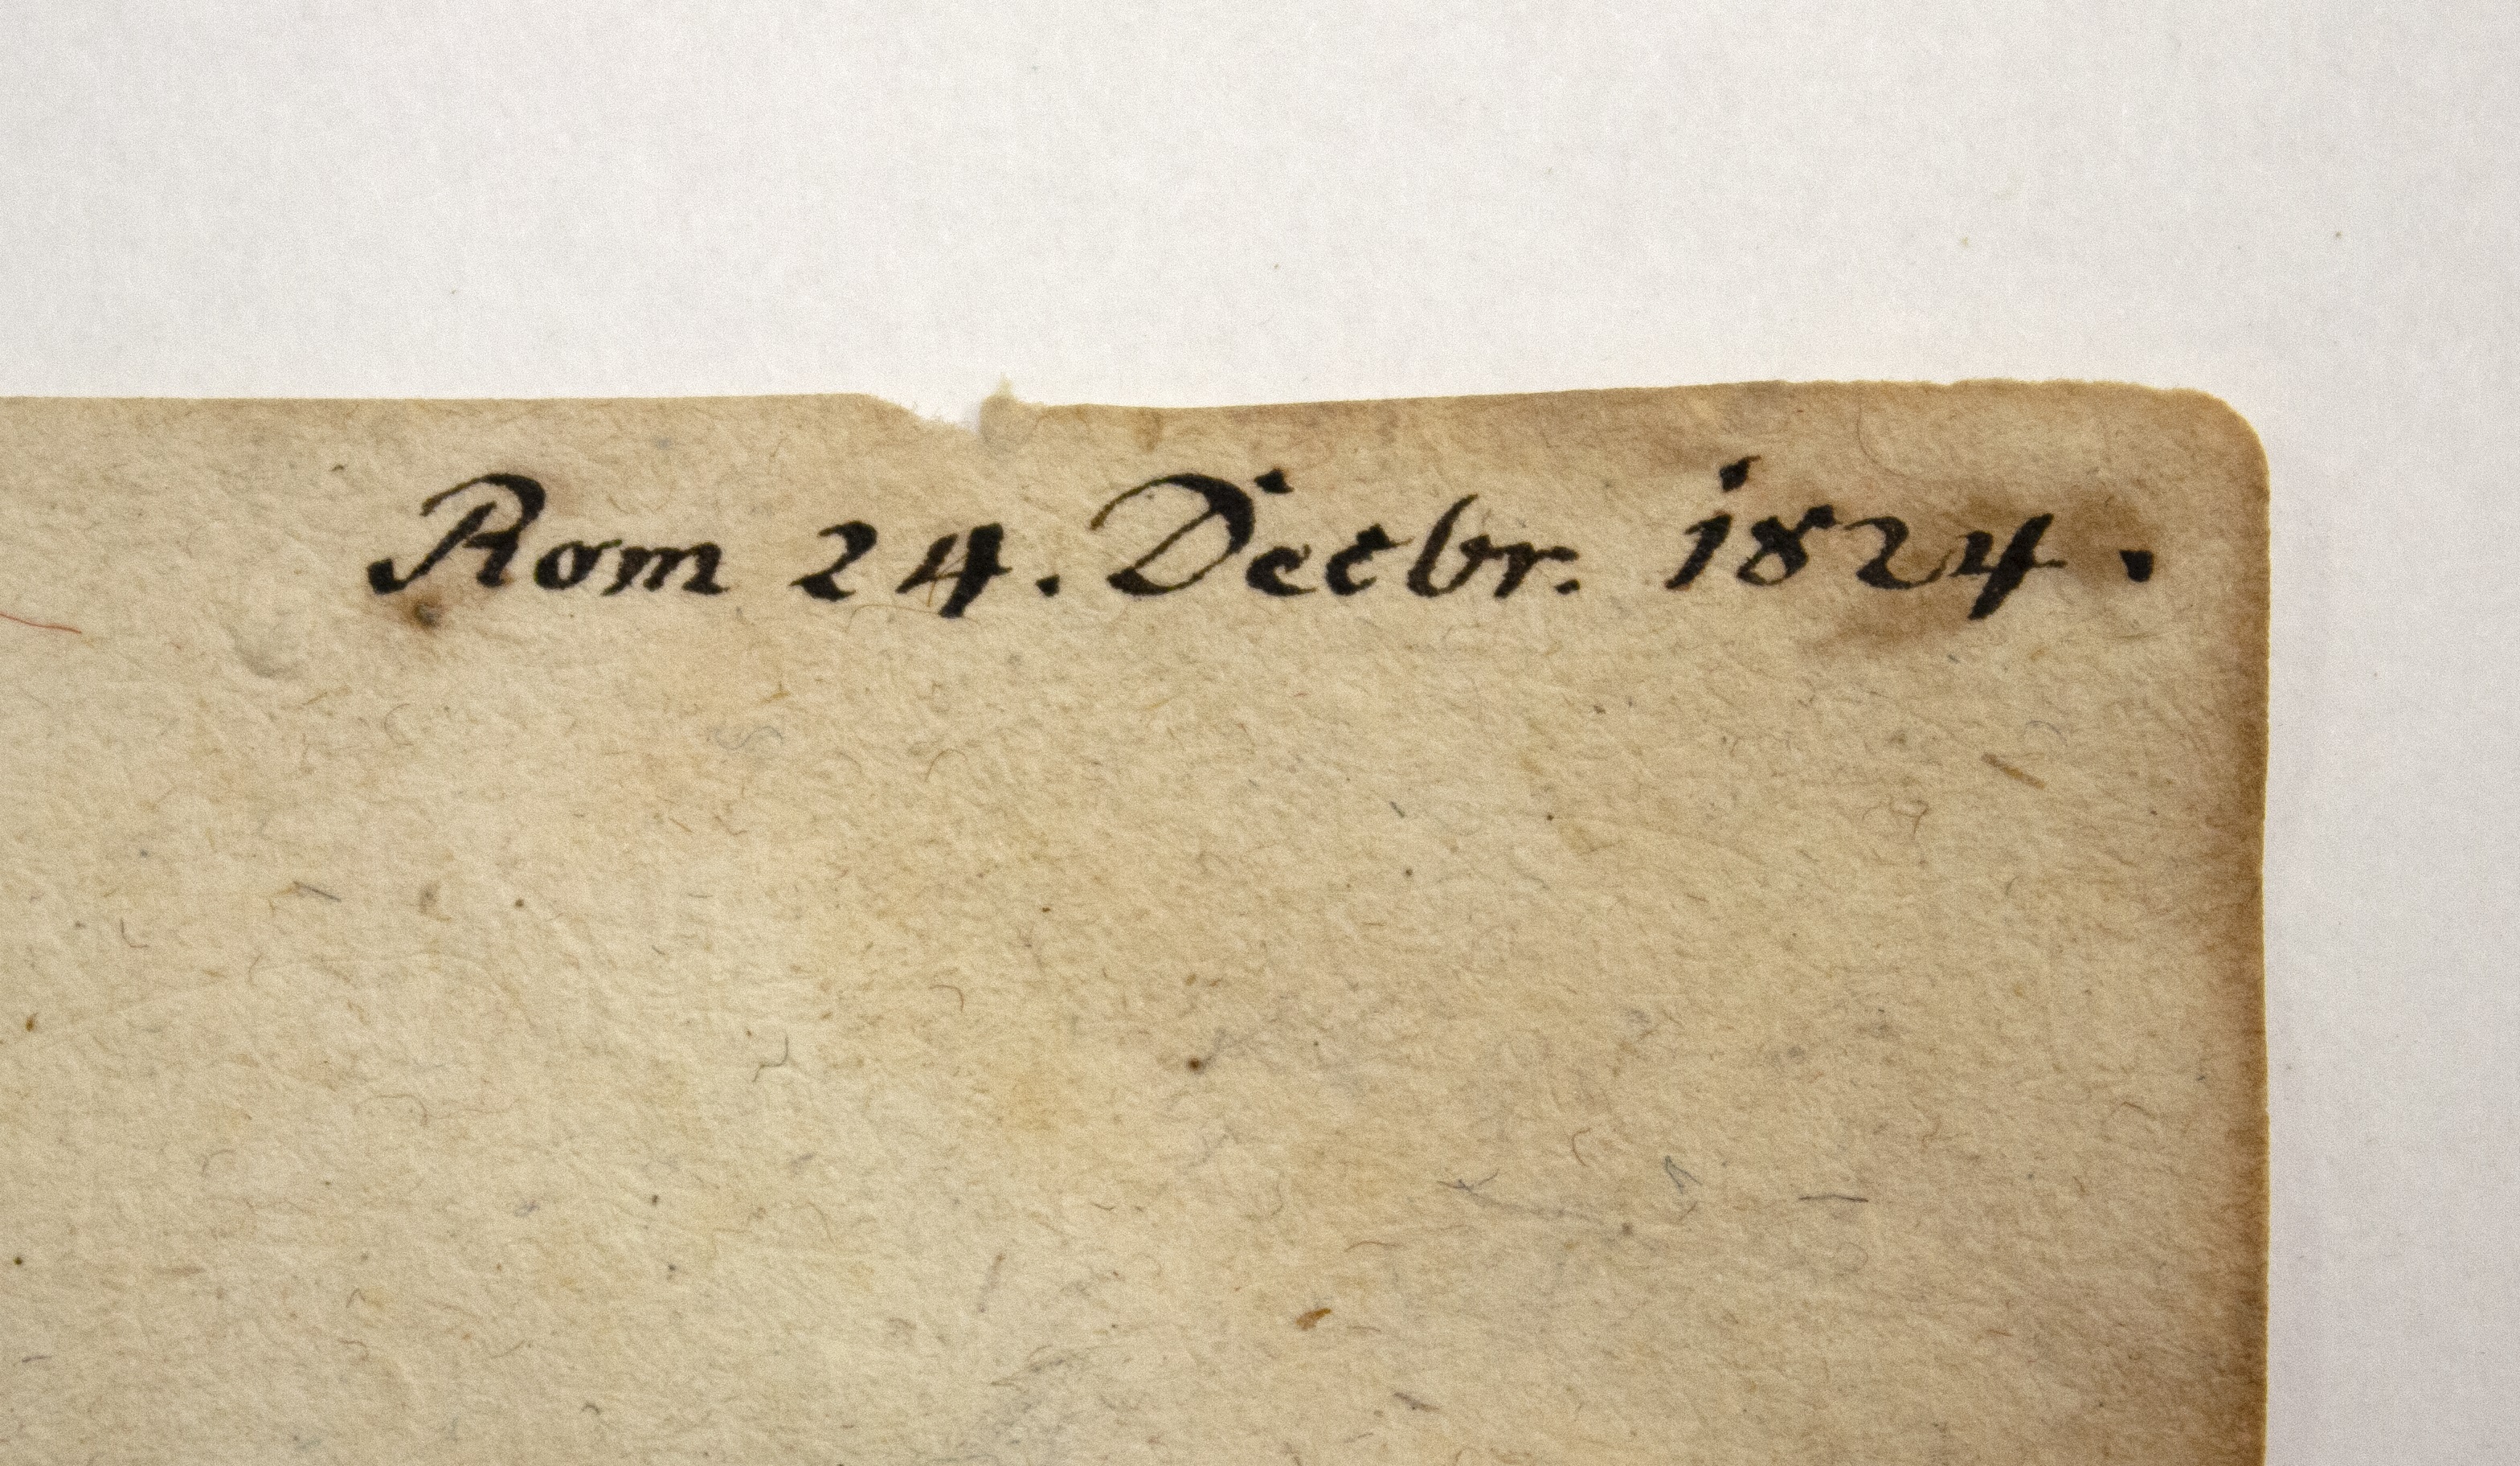 Rom 24. Decbr. 1824.